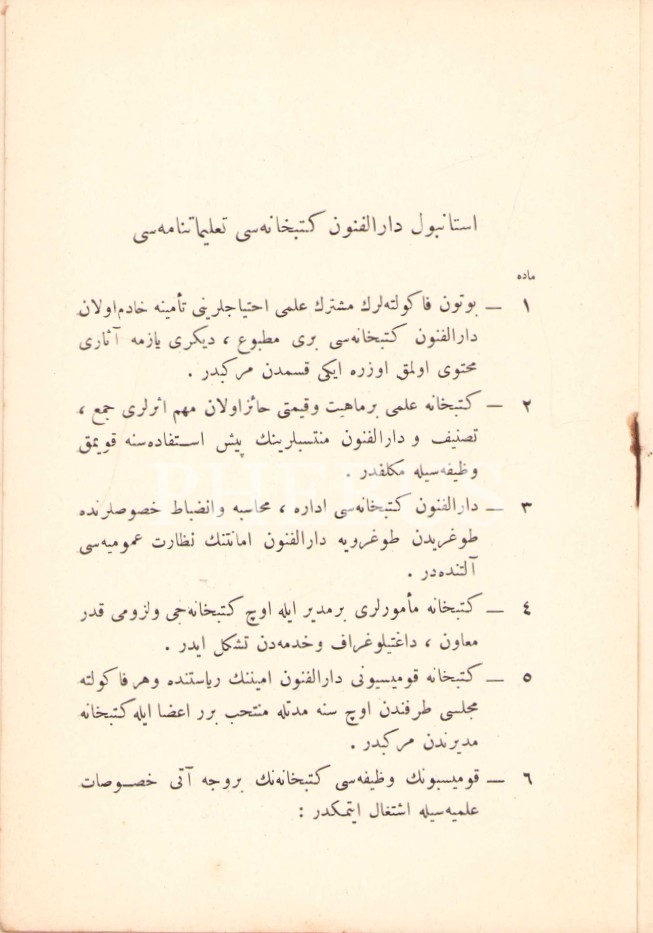 استانبول دارالفنون كتبخانه‌سی تعلیماتنامه‌سی
ماده
١ — بوتون فاكولته‌لرك مشترك علمی احتیاجلرینی تأمینه خادم اولان
دارالفنون كتبخانه‌سی بری مطبوع ، دیكری یازمه آثاری
محتوی اولمق اوزره ایكی قسمدن مركبدر .
٢ — كتبخانه علمی برماهیت وقیمتی حائز اولان مهم اثرلری جمع ،
تصنیف و دارالفنون منتسبلرینك پیش استفاده‌سنه قویمق
وظیفه‌سیله مكلفدر .
٣ — دارالفنون كتبخانه‌سی اداره ، محاسبه وانضباط خصوصلرنده
طوغریدن طوغرویه دارالفنون امانتنك نظارت عمومیه‌سی
آلتنده‌در .
٤ — كتبخانه مأمورلری برمدیر ایله اوچ كتبخانه‌جی ولزومی قدر
معاون ، داغتیلوغراف وخدمه‌دن تشكل ایدر .
٥ — كتبخانه قومیسیونی دارالفنون امیننك ریاستنده وهر فاكولته
مجلسی طرفندن اوچ سنه مدتله منتخب برر اعضا ایله كتبخانه
مدیرندن مركبدر .
٦ — قومیسیونك وظیفه‌سی كتبخانه‌نك بروجه آتی خصوصات
علمیه‌سیله اشتغال ایتمكدر :